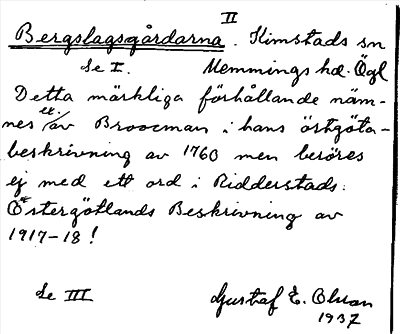 II
Bergslagsgårdarna. Kimstads sn
Se I. Memmings hd. Ögl
Detta märkliga förhållande näm-
nes ej av Broocman i hans östgöta-
beskrivning av 1760 men beröres
ej med ett ord i Ridderstads:
Östergötlands Beskrivning av
1917-18!
Se III Gustaf E. Olsson
1937